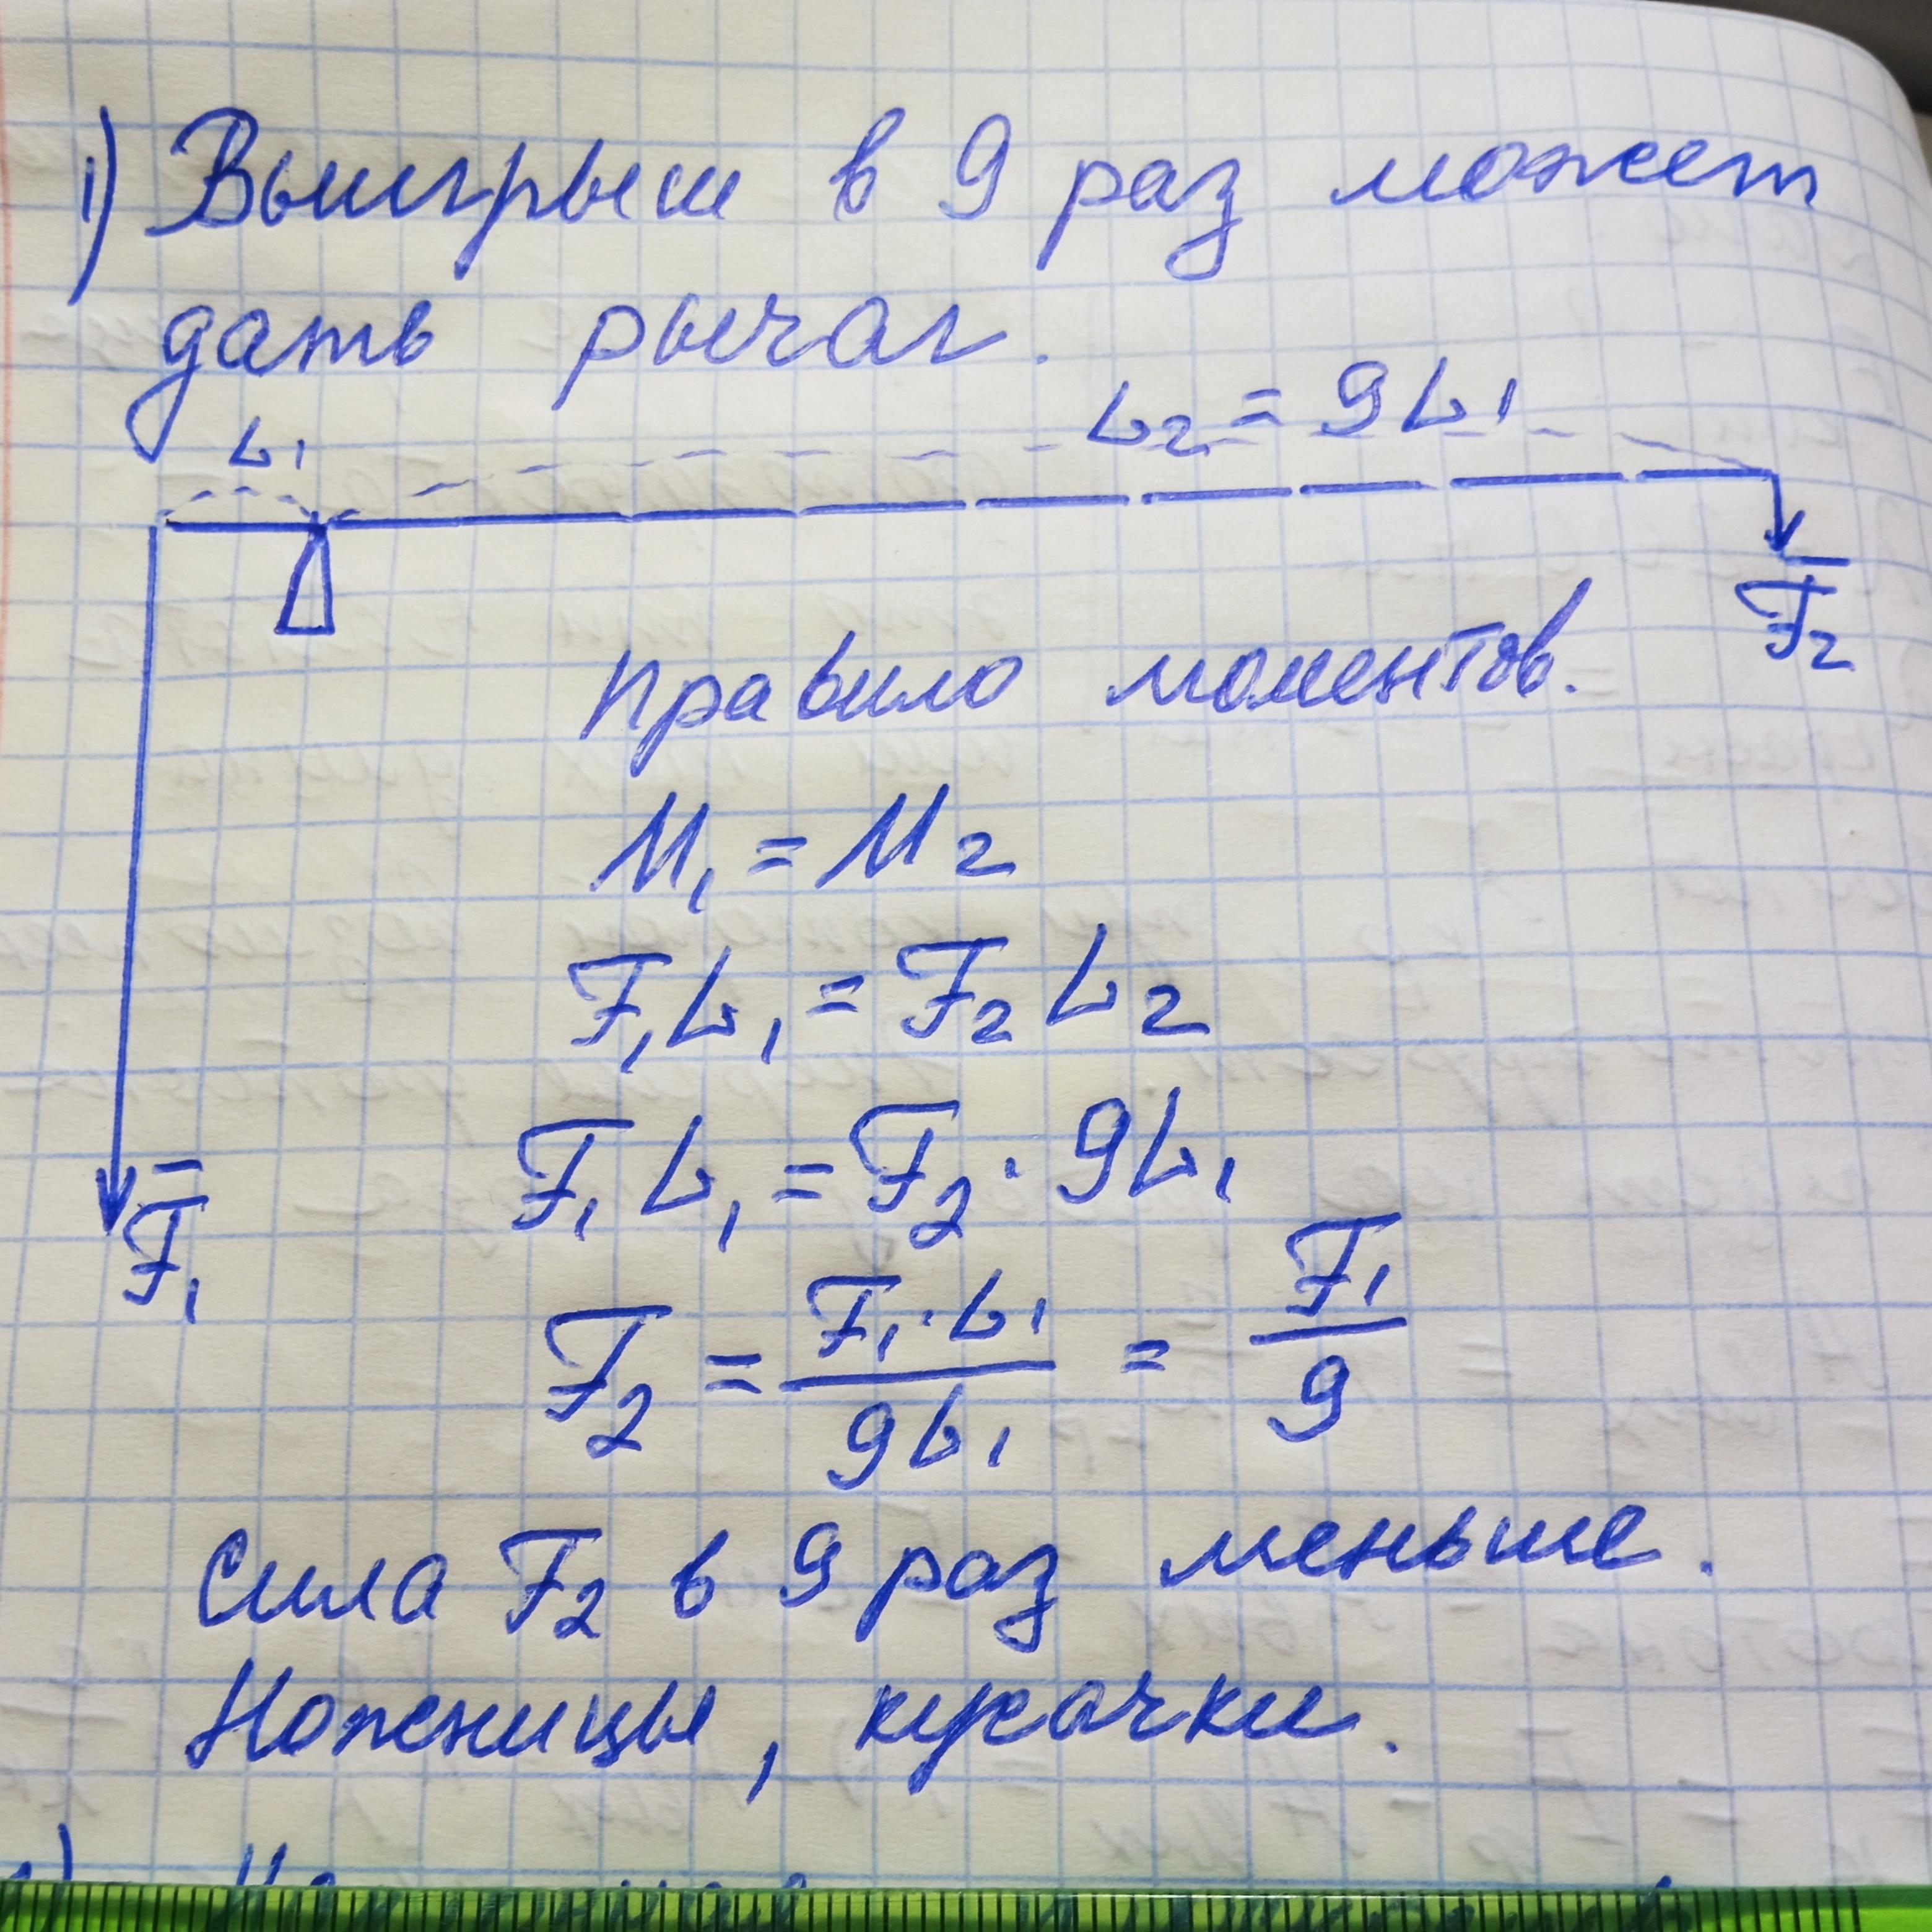 1) Выигрыш в 9 раз может
дать рычаг.
L₁ L₂ = 9L₁
F̅₂
Правило моментов.
M₁ = M₂
F₁L₁ = F₂L₂
F₁L₁ = F₂ · 9L₁
F̅₁
F₂ = F₁·L₁ / 9L₁ = F₁ / 9
Сила F₂ в 9 раз меньше.
Ножницы, кусачки.